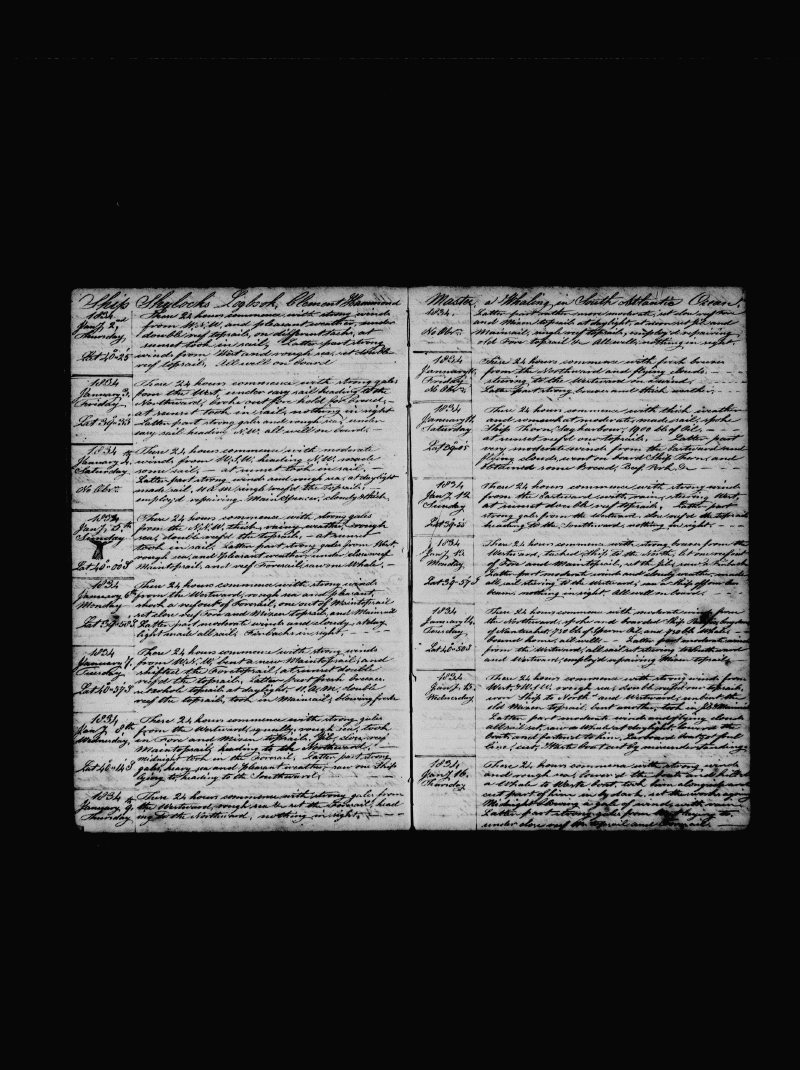 Ship Shylocks Logbook, Clement Hammond
1834
Jany 2nd
Thursday,
Lat 40-25
These 24 hours commence with strong winds
from W.S.W. and pleasant weather, under
double reef topsails, on different tacks, at
sunset took in sail, Latter part strong
winds from West and rough sea, set double
reef topsails, All well on board
1834
January 3,
Friday
Lat 39-38
These 24 hours commence with strong gales
from the West, under easy sail heading to the
Northward,
at sunset took in sail, nothing in sight
Latter part strong gales and rough sea, under
easy sail heading N.W. all well on board.
1834
January 4,
Saturday
No Obsn
These 24 hours commence with moderate
winds from W.S.W. heading N.W. made
some sail, at sunset took in sail,
Latter part strong winds and rough sea, at daylight
made sail,
employd repairing Main Spencer, cloudy & thick,
1834
Jany 5th
Sunday
Lat 40-00 S
These 24 hours commence with strong gales
from the N.N.W. thick, rainy weather, rough
sea, double reefd the topsails, at sunset
took in sail. Latter part strong gales from West,
rough sea, and pleasant weather, under close reef
Maintopsail, and reef Foresail, saw one Whale,
1834
January 6th
Monday
Lat 39-50 S
These 24 hours commence with strong winds
from the Westward, rough sea and pleasant,
shook a reef out of Foresail, one out of Maintopsail
set close reef Fore and Mizen topsail, and Mainsail
Latter part moderate winds and cloudy, at day
light made all sail, Finbacks in sight,
1834
January 7,
Tuesday
Lat 40-37 S
These 24 hours commence with strong winds
from W.N.W. bent a new Maintopsail, and
shifted the Foretopsail, at sunset double
reefd the topsails, Latter part fresh breezes,
whole topsails at daylight, 10 A.M. double
reef the topsails, took in Mainsail, blowing fresh
1834
Jany 8th
Wednesday,
Lat 40-48 S
These 24 hours commence with strong gales
from the Westward, squally, rough sea, took
in Fore and Mizen topsails, Jib, close reef
Maintopsail, heading to the Northward,
midnight took in the Foresail, Latter part strong
gales, heavy sea and pleasant weather, saw one Ship
lying to heading to the Southward,
1834
January 9,
Thursday
These 24 hours commence with strong gales from
the Westward, rough sea &c set the Foresail, head
ing to the Northward, nothing in sight,
Master, a Whaling, in South Atlantic Ocean,
1834.
No Obsn
Latter part rather more moderate, set close reef Fore
and Main topsails at daylight,
Mainsail, single reef topsails, employd repairing
old Fore topsail &c All well, nothing in sight.
1834
January 10,
Friday
No Obsn
These 24 hours commence with fresh breezes
from the Northward and flying clouds,
steering to the Westward
Latter part strong breezes and thick weather.
1834
January 11,
Saturday
Lat 39-05
These 24 hours commence with thick weather
and somewhat moderate, made sail, spoke
Ship Thorn, Sag harbour, 1900 bbls Oil,
at sunset reefd our topsails, Latter part
very moderate winds from the Eastward and
flying clouds, went on board Ship Thorn, and
obtained some Bread, Beef, Pork &c
1834
Jany 12
Sunday
Lat 39-25
These 24 hours commence with strong winds
from the Eastward with rain, steering West,
at sunset double reef topsails, Latter part
strong gales from the Westward,
heading to the Southward, nothing in sight,
1834
Jany 13
Monday,
Lat 39-57 S
These 24 hours commence with strong breezes from the
Westward, tacked Ship to the North, let one reef out
of Fore and Maintopsails, set the jib,
Latter part moderate winds and cloudy weather, made
sail, steering to the Westward, saw a Ship off on the
beam, nothing in sight. All well on board,
1834
January 14,
Tuesday,
Lat 40-30 S
These 24 hours commence with moderate winds from
the Northward, spoke and boarded Ship
of Nantucket,
bound home, all well, Latter part moderate winds
from the Westward, all sail set steering to Southward
and Westward, employd repairing Mizen topsail,
1834
Jany 15,
Wednesday,
These 24 hours commence with strong winds from
West, rough sea, double reefd our topsails,
wore Ship to North and Westward, unbent the
old Mizen topsail, bent another, took in Jib & Mainsail
Latter part moderate winds and flying clouds
all sail set, saw a Whale at daylight, lowered the
boats and fastened to him, Larboard boat got foul
line, cut, Waste boat cut by misunderstanding,
1834
Jany 16,
Thursday
These 24 hours commence with strong winds
and rough sea, lowered the boats
a Whale to Waste boat, took him alongside and
cut part of him in by dark, set the watch
Midnight blowing a gale of wind, with rain,
Latter part strong gales from West lying to,
under close reef Maintopsail and Foresail.